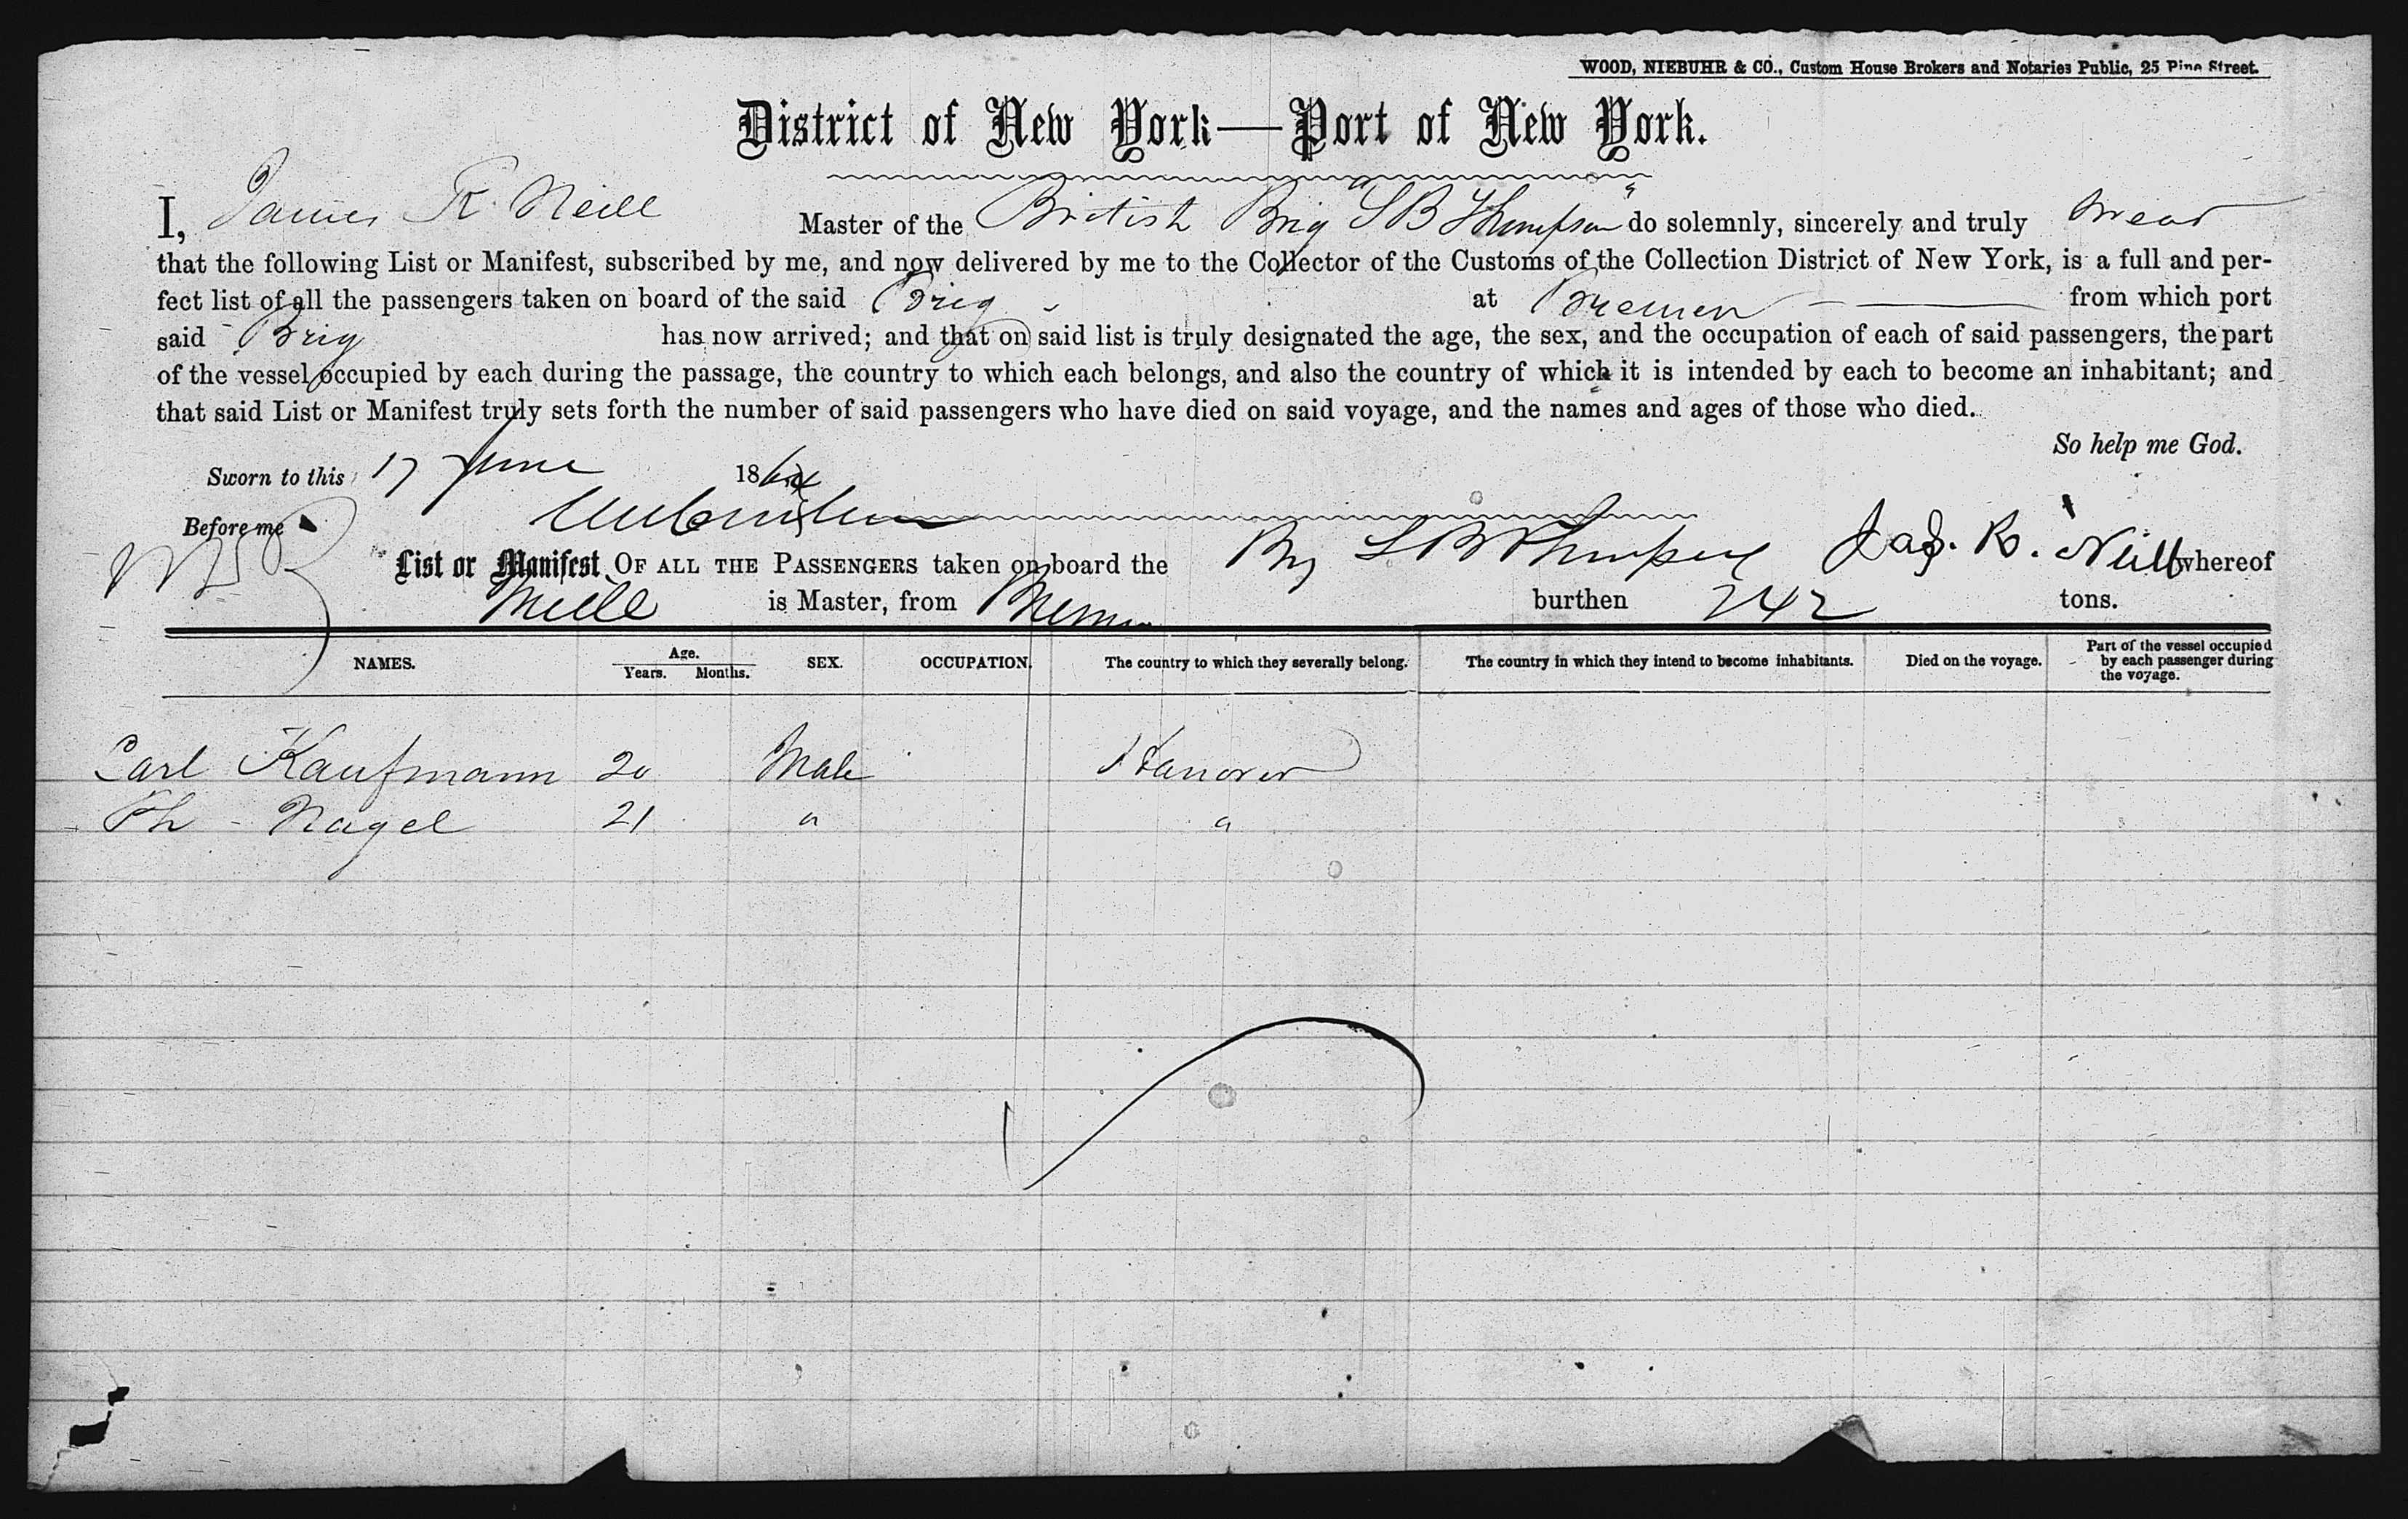 WOOD, NIEBUHR & CO., Custom House Brokers and Notaries Public, 25 Pine Street.
District of New York—Port of New York.
I, James R. Neill Master of the British Brig "S B Thompson" do solemnly, sincerely and truly swear
that the following List or Manifest, subscribed by me, and now delivered by me to the Collector of the Customs of the Collection District of New York, is a full and per-
fect list of all the passengers taken on board of the said Brig at Bremen from which port
said Brig has now arrived; and that on said list is truly designated the age, the sex, and the occupation of each of said passengers, the part
of the vessel occupied by each during the passage, the country to which each belongs, and also the country of which it is intended by each to become an inhabitant; and
that said List or Manifest truly sets forth the number of said passengers who have died on said voyage, and the names and ages of those who died.
So help me God.
Sworn to this 17 June 1864
Before me
Jas. R. Neill
List or Manifest OF ALL THE PASSENGERS taken on board the Brig S B Thompson whereof
Neill is Master, from Bremen burthen 242 tons.
NAMES. Age. Years. Months. SEX. OCCUPATION. The country to which they severally belong. The country in which they intend to become inhabitants. Died on the voyage. Part of the vessel occupied by each passenger during the voyage.
Carl Kaufmann 20 Male Hanover
Ph - Nagel 21 " "